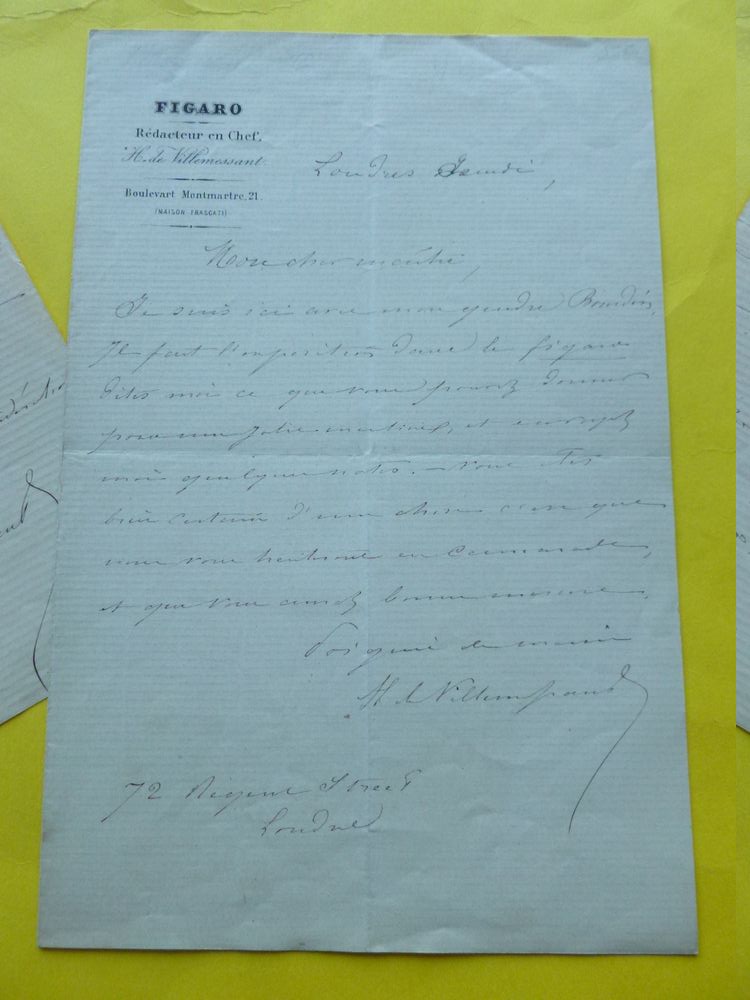 FIGARO
Rédacteur en Chef,
H. de Villemessant
Boulevart Montmartre, 21.
(MAISON FRASCATI)
Londres Jeudi,
Mon cher maître,
Je suis ici avec mon gendre Bourdin,
Il fait l'exposition dans le figaro
dites moi ce que vous pouvez donner
pour une jolie et envoyez
moi quelques notes. - Vous êtes
bien certain d'une chose c'est que
nous vous traitons en Camarade,
et que vous aurez bonne mesure.
Poignée de main
H. de Villemessant
72 Régent Street
Londres